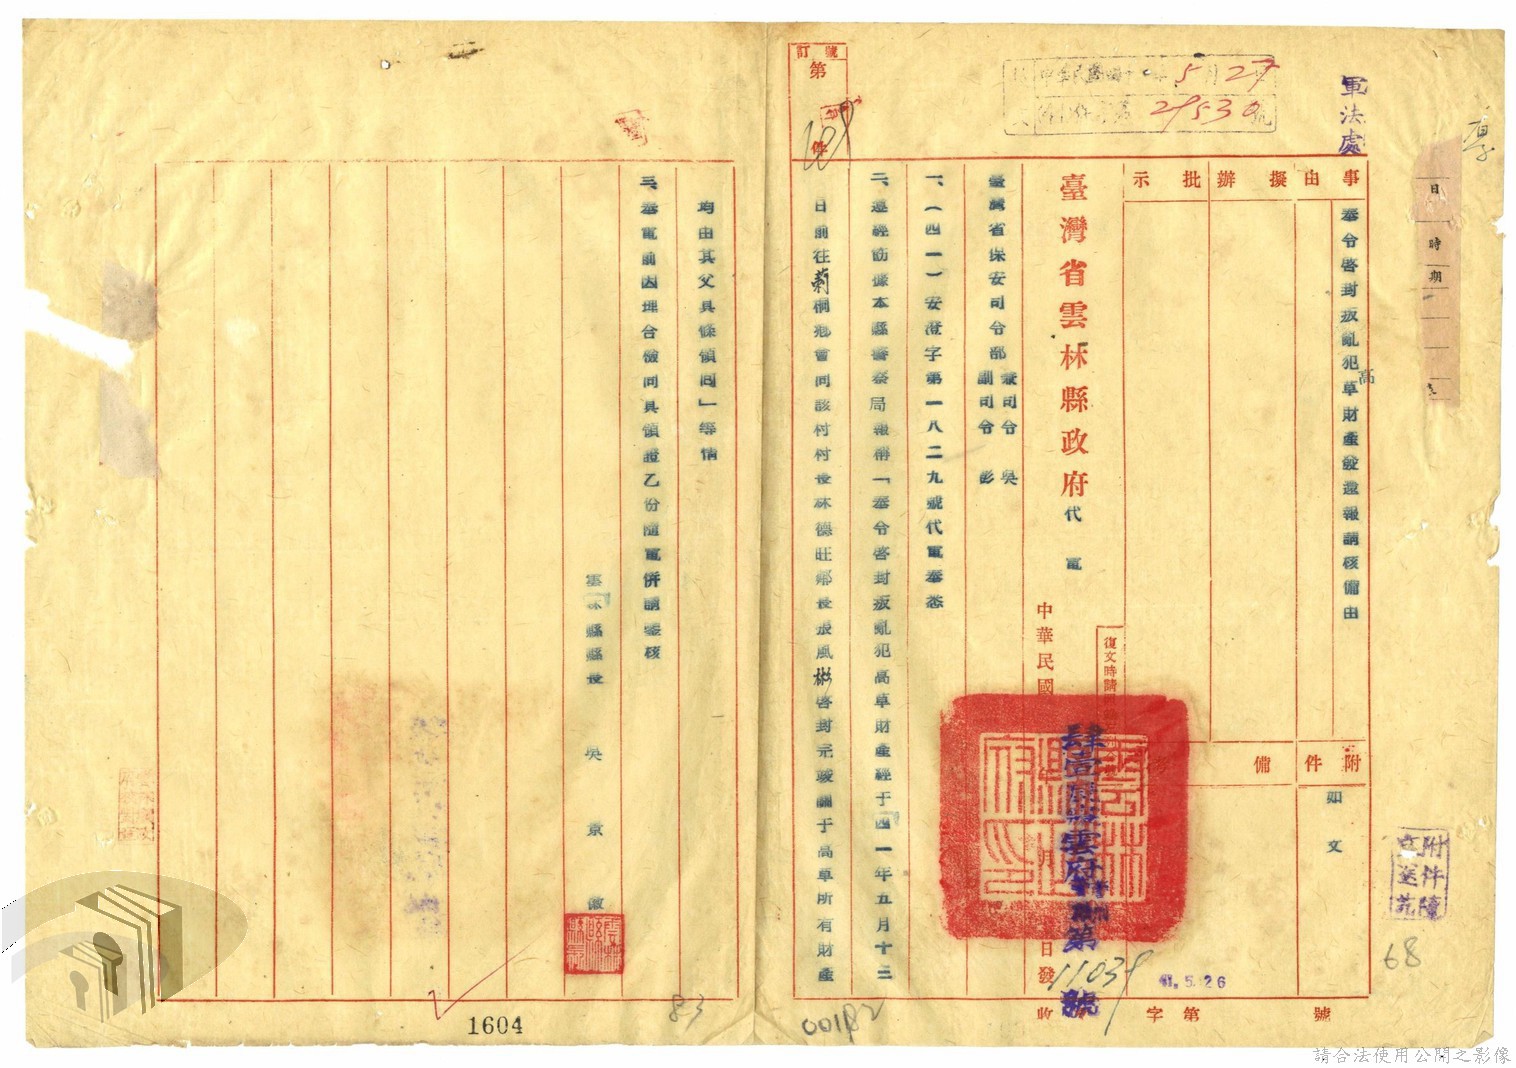 軍法處
5 27
29530
訂號
第
件
事由
擬辦
批示
附件
備
奉令啓封叛亂犯高草財產經遵報請核備由
如文
臺灣省雲林縣政府代電
中華民國
復文時請
肆壹
雲府
第11039號
日發
41.5.26
收 字 第 號
臺灣省保安司令部兼司令吳
副司令彭
一、(四一)安澄字第一八二九號代電奉悉
二、遵經飭據本縣警察局報稱「奉令啓封叛亂犯高草財產經于四一年五月十三
日前往莿桐鄉會同該村村長林德旺鄰長張風彬啓封完竣關于高草所有財產
均由其父具條領回」等情
三、奉電前因理合檢同具領證乙份隨電併請鑒核
雲林縣縣長 吳景徽
附件隨文送訖
日
時
期
68
83
00182
1604
請合法使用公開之影像